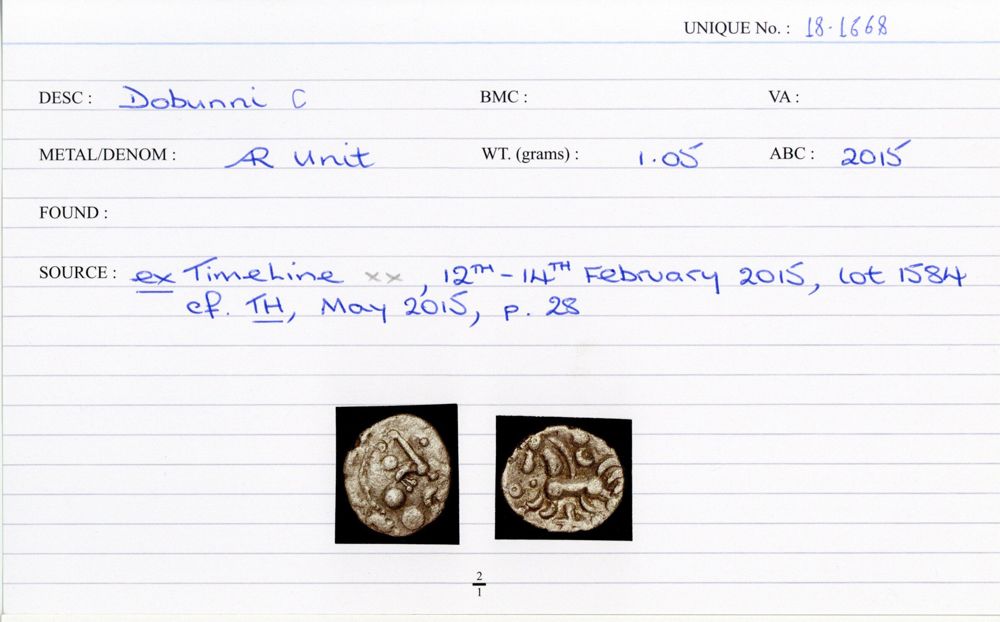 UNIQUE No. : 18-1668
DESC : Dobunni C BMC : VA :
METAL/DENOM : AR Unit WT. (grams) : 1.05 ABC : 2015
FOUND :
SOURCE : ex TimeLine xx, 12TH - 14TH February 2015, lot 1584
cf. TH, May 2015, p. 28
2
1